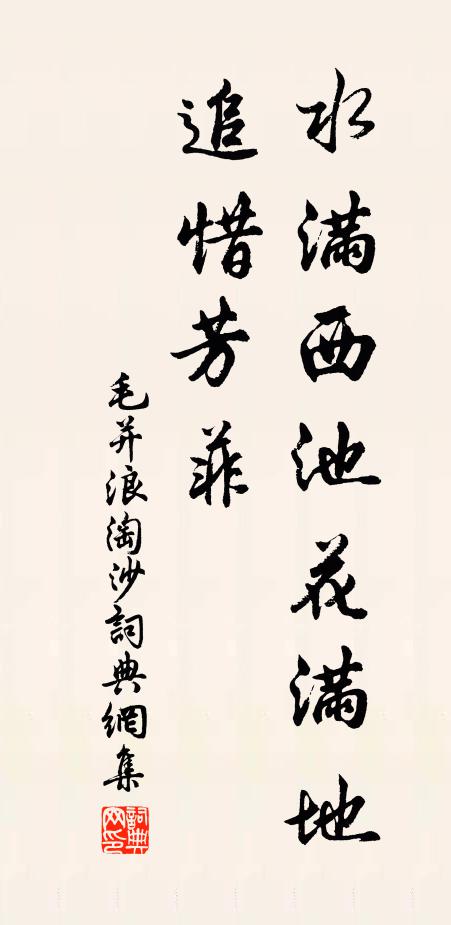 水滿西池花滿地
追惜芳菲
毛并浪淘沙詞典網集
詞典网印